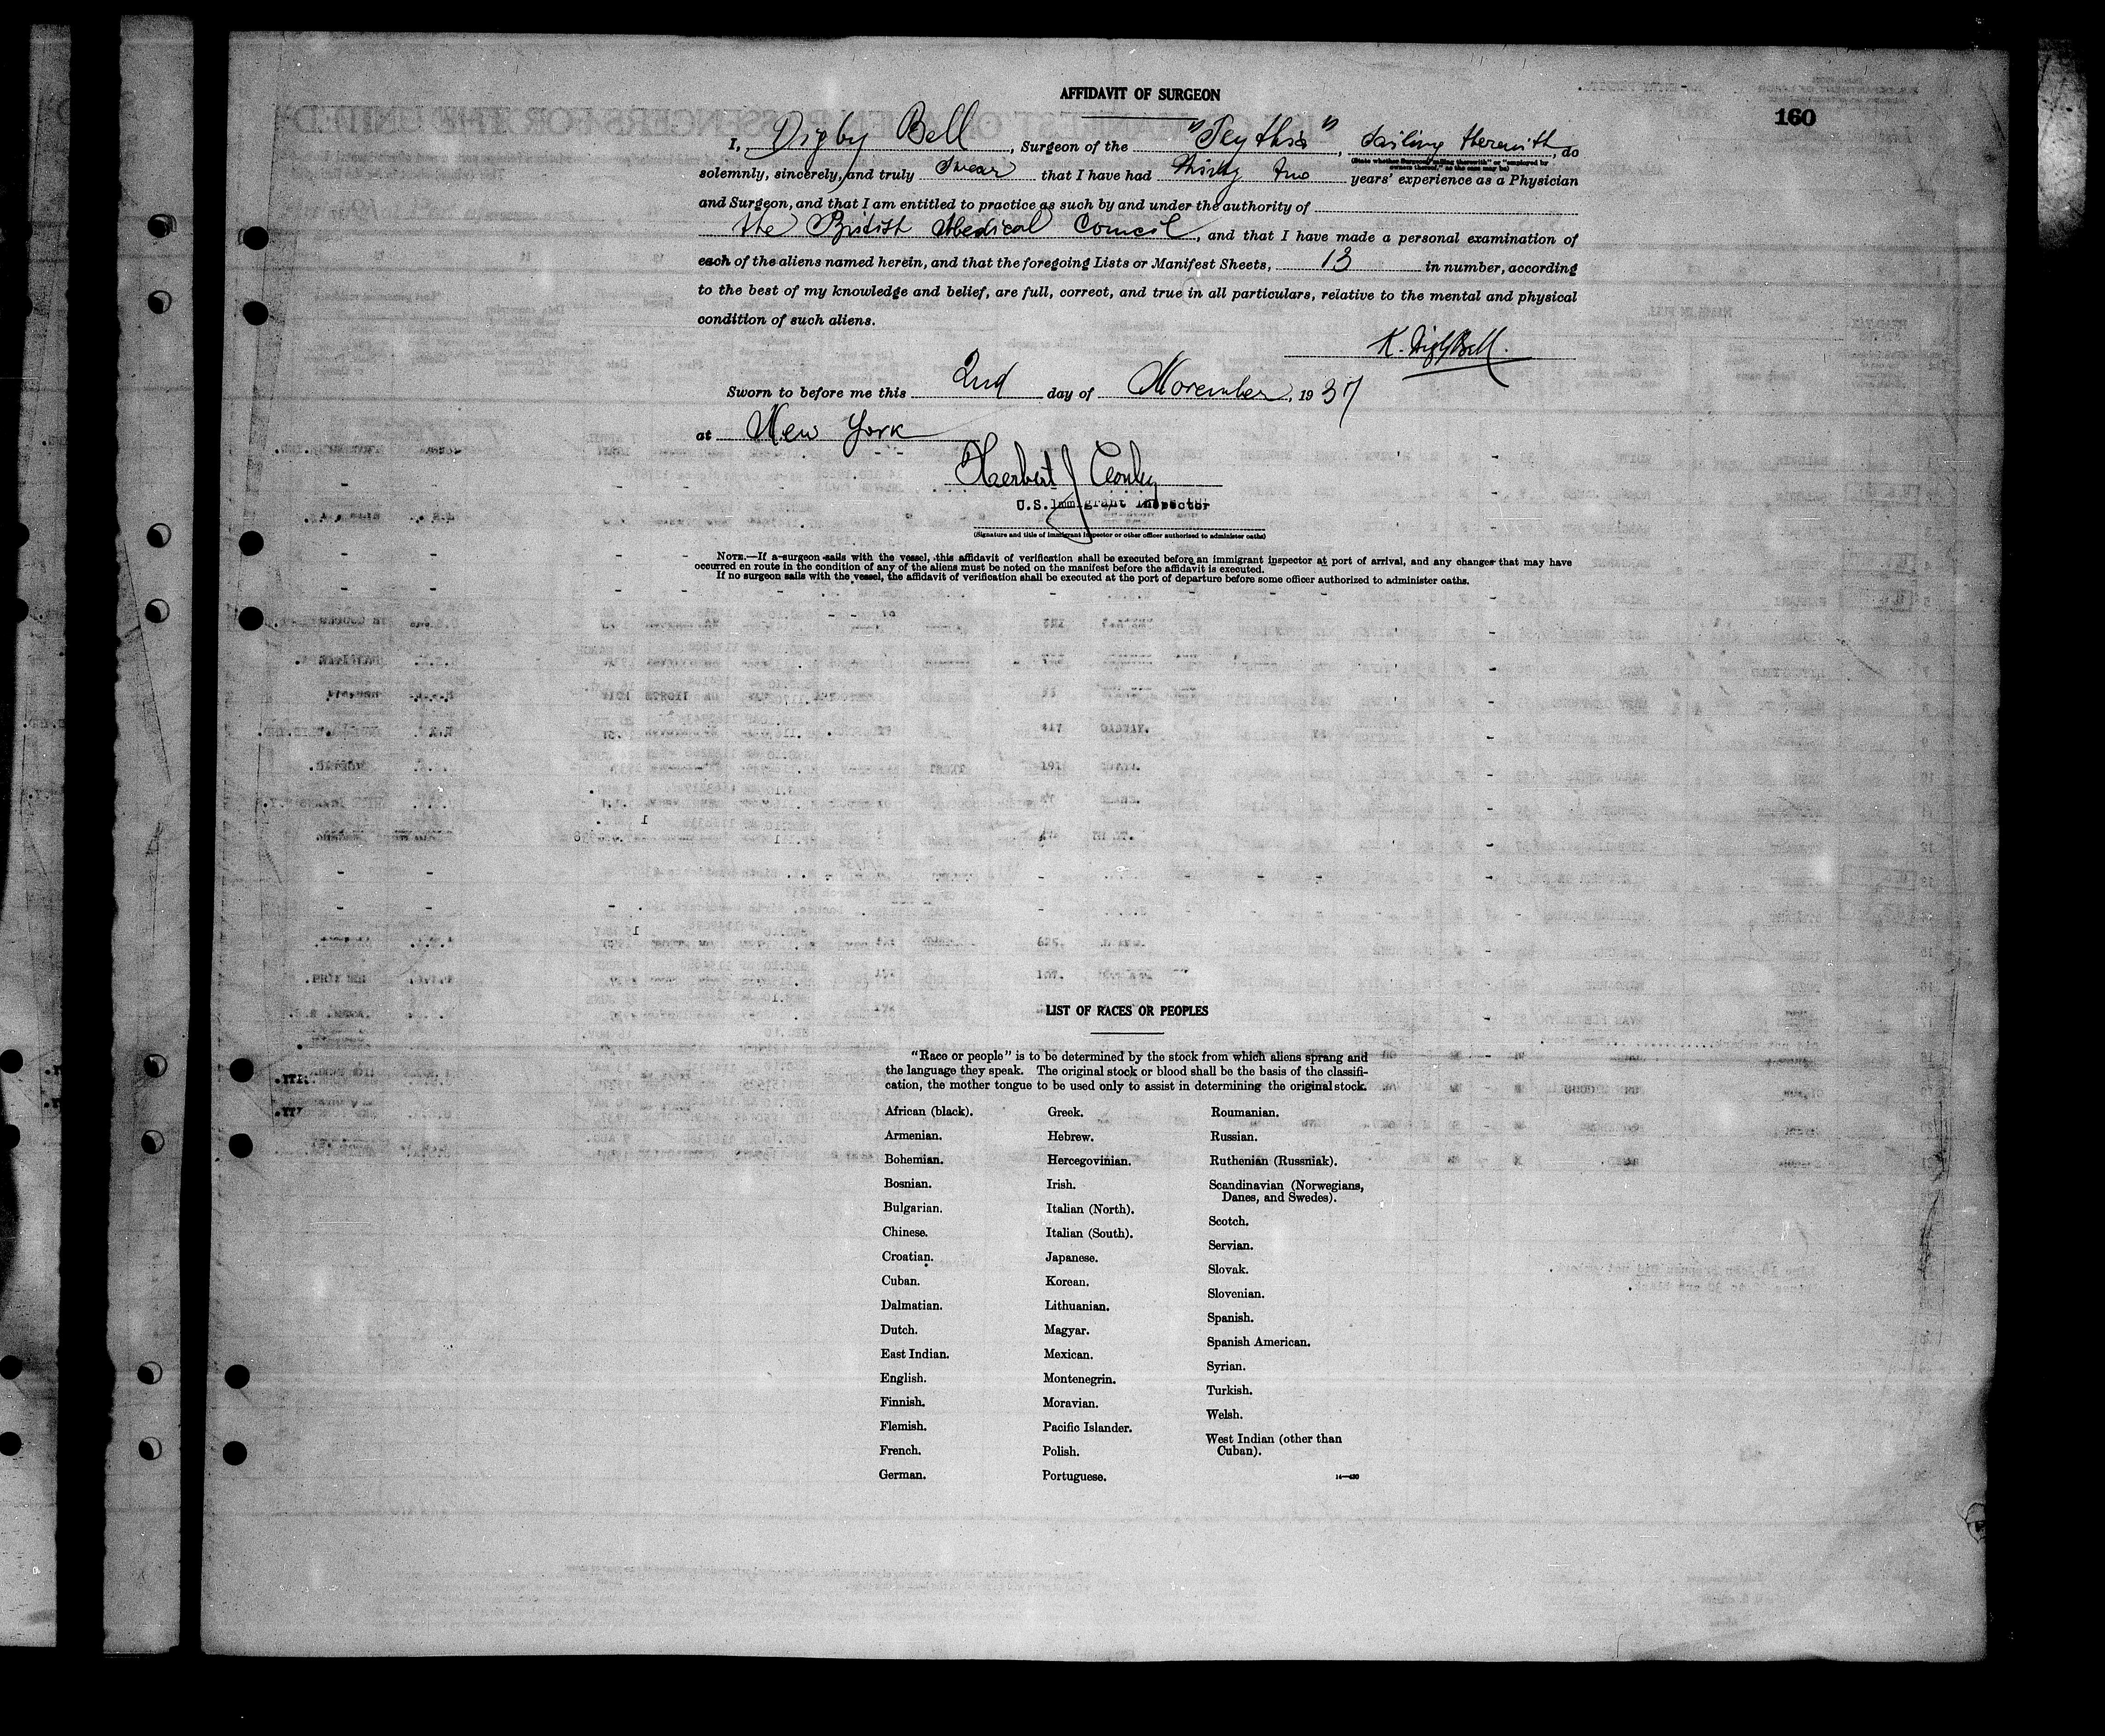 AFFIDAVIT OF SURGEON
160
I, Digby Bell, Surgeon of the "Scythia", Sailing therewith, do
(State whether Surgeon "sailing therewith" or "employed by
owners thereof," as the case may be)
solemnly, sincerely, and truly Swear that I have had thirty two years' experience as a Physician
and Surgeon, and that I am entitled to practice as such by and under the authority of
the British Medical Council, and that I have made a personal examination of
each of the aliens named herein, and that the foregoing Lists or Manifest Sheets, 13 in number, according
to the best of my knowledge and belief, are full, correct, and true in all particulars, relative to the mental and physical
condition of such aliens.
K. Digby Bell.
Sworn to before me this 2nd day of November, 1937
at New York
Herbert J
U.S. Immigrant Inspector
(Signature and title of immigrant inspector or other officer authorized to administer oaths)
NOTE.—If a surgeon sails with the vessel, this affidavit of verification shall be executed before an immigrant inspector at port of arrival, and any changes that may have
occurred en route in the condition of any of the aliens must be noted on the manifest before the affidavit is executed.
If no surgeon sails with the vessel, the affidavit of verification shall be executed at the port of departure before some officer authorized to administer oaths.
LIST OF RACES OR PEOPLES
"Race or people" is to be determined by the stock from which aliens sprang and
the language they speak. The original stock or blood shall be the basis of the classifi-
cation, the mother tongue to be used only to assist in determining the original stock.
African (black).
Armenian.
Bohemian.
Bosnian.
Bulgarian.
Chinese.
Croatian.
Cuban.
Dalmatian.
Dutch.
East Indian.
English.
Finnish.
Flemish.
French.
German.
Greek.
Hebrew.
Hercegovinian.
Irish.
Italian (North).
Italian (South).
Japanese.
Korean.
Lithuanian.
Magyar.
Mexican.
Montenegrin.
Moravian.
Pacific Islander.
Polish.
Portuguese.
Roumanian.
Russian.
Ruthenian (Russniak).
Scandinavian (Norwegians,
Danes, and Swedes).
Scotch.
Servian.
Slovak.
Slovenian.
Spanish.
Spanish American.
Syrian.
Turkish.
Welsh.
West Indian (other than
Cuban).